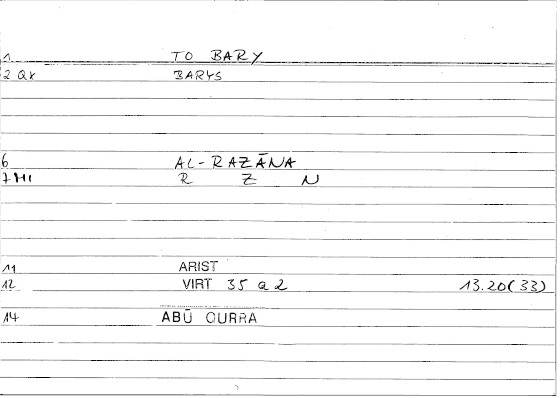 1 TO BARY
2 QX BARYS
6 AL-RAZĀNA
7 HI R Z N
11 ARIST
12 VIRT 35 a 2 13.20(33)
14 ABŪ QURRA